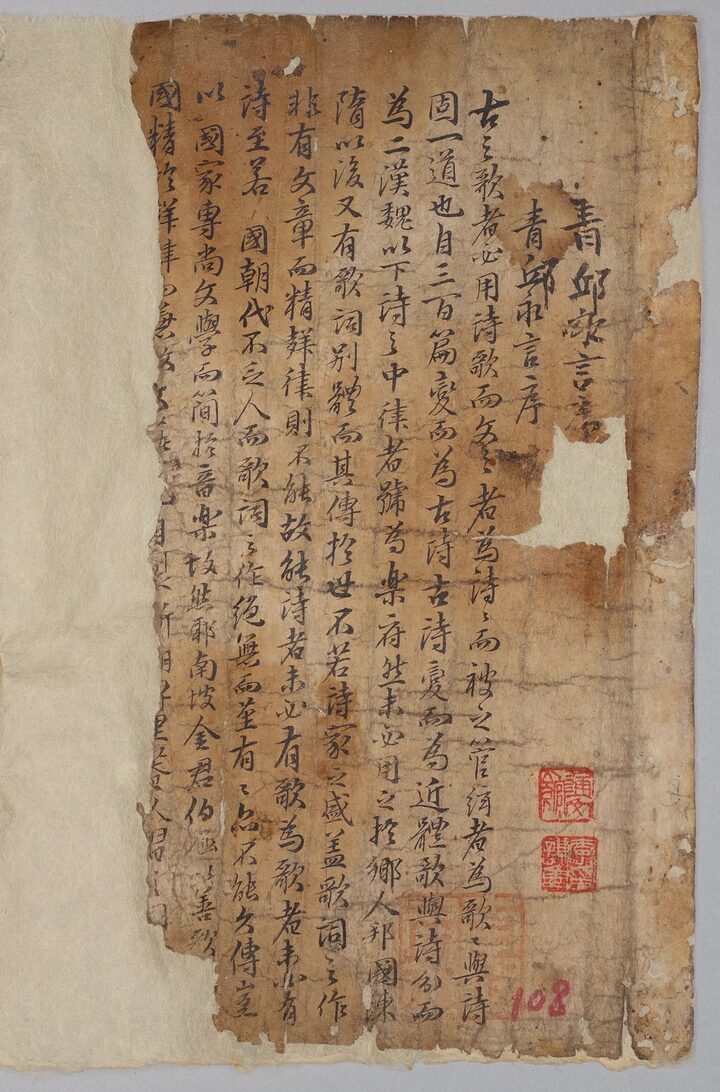 青邱 言
青邱永言序
古之歌者必用詩歌而文之者為詩〻而被之管絃者為歌〻與詩
固一道也自三百篇變而為古詩古詩變而為近體歌與詩分而
為二漢魏以下詩之中律者號為樂府然未必用之於鄉人邦國陳
隋以後又有歌詞別體而其傳於世不若詩家之盛盖歌詞之作
非有文章而精聲律則不能故能詩者未必有歌為歌者未必有
詩至若 國朝代不乏人而歌詞之作絶無而堇有〻亦不能久傳豈
以國家專尚文學而簡於音樂故然耶南坡金君伯涵以善歌
國精於聲律而兼攻文
108